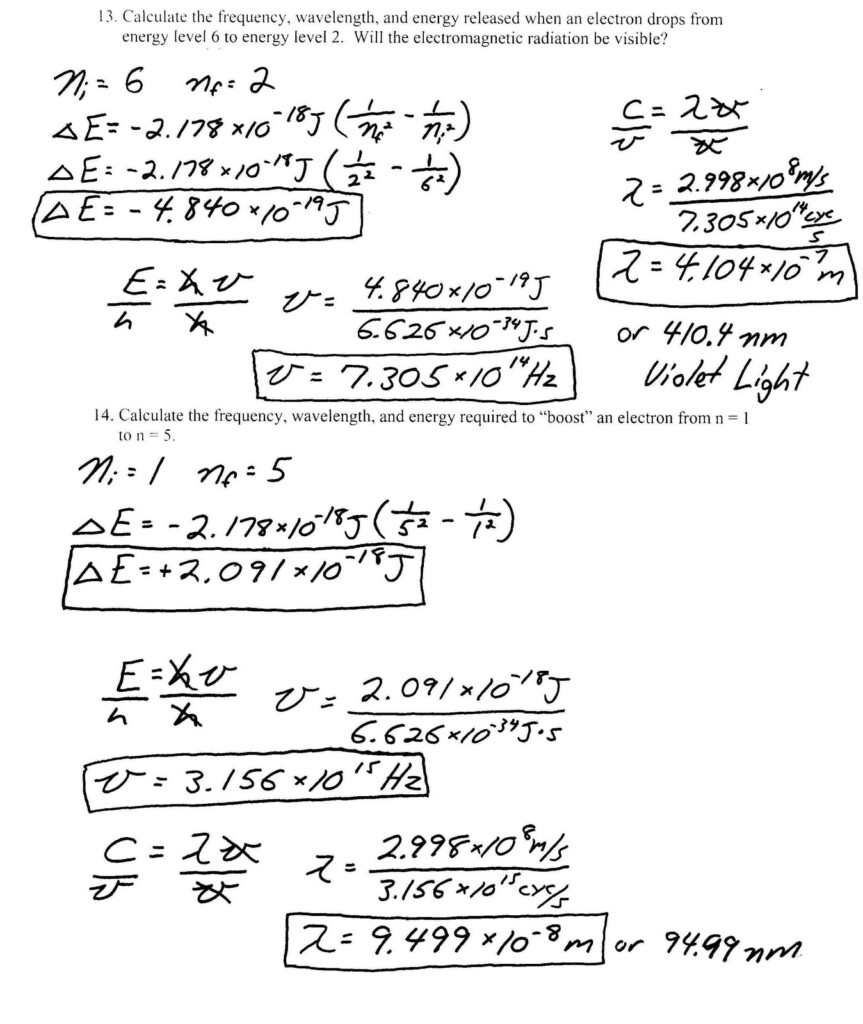 13. Calculate the frequency, wavelength, and energy released when an electron drops from
energy level 6 to energy level 2. Will the electromagnetic radiation be visible?
nᵢ = 6 n_f = 2
ΔE = -2.178 ×10⁻¹⁸J (1/n_f² - 1/nᵢ²)
ΔE = -2.178 ×10⁻¹⁸J (1/2² - 1/6²)
ΔE = - 4.840 ×10⁻¹⁹J
E = hν
h h
ν = 4.840×10⁻¹⁹J
6.626 ×10⁻³⁴J·s
ν = 7.305 ×10¹⁴Hz
C = λν
ν ν
λ = 2.998×10⁸m/s
7.305×10¹⁴cyc/s
λ = 4.104×10⁻⁷m
or 410.4 nm
Violet Light
14. Calculate the frequency, wavelength, and energy required to “boost” an electron from n = 1
to n = 5.
nᵢ = 1 n_f = 5
ΔE = -2.178×10⁻¹⁸J (1/5² - 1/1²)
ΔE = +2.091 ×10⁻¹⁸J
E = hν
h h
ν = 2.091×10⁻¹⁸J
6.626×10⁻³⁴J·s
ν = 3.156 ×10¹⁵Hz
C = λν
ν ν
λ = 2.998×10⁸m/s
3.156 ×10¹⁵cyc/s
λ = 9.499 ×10⁻⁸m or 94.99 nm